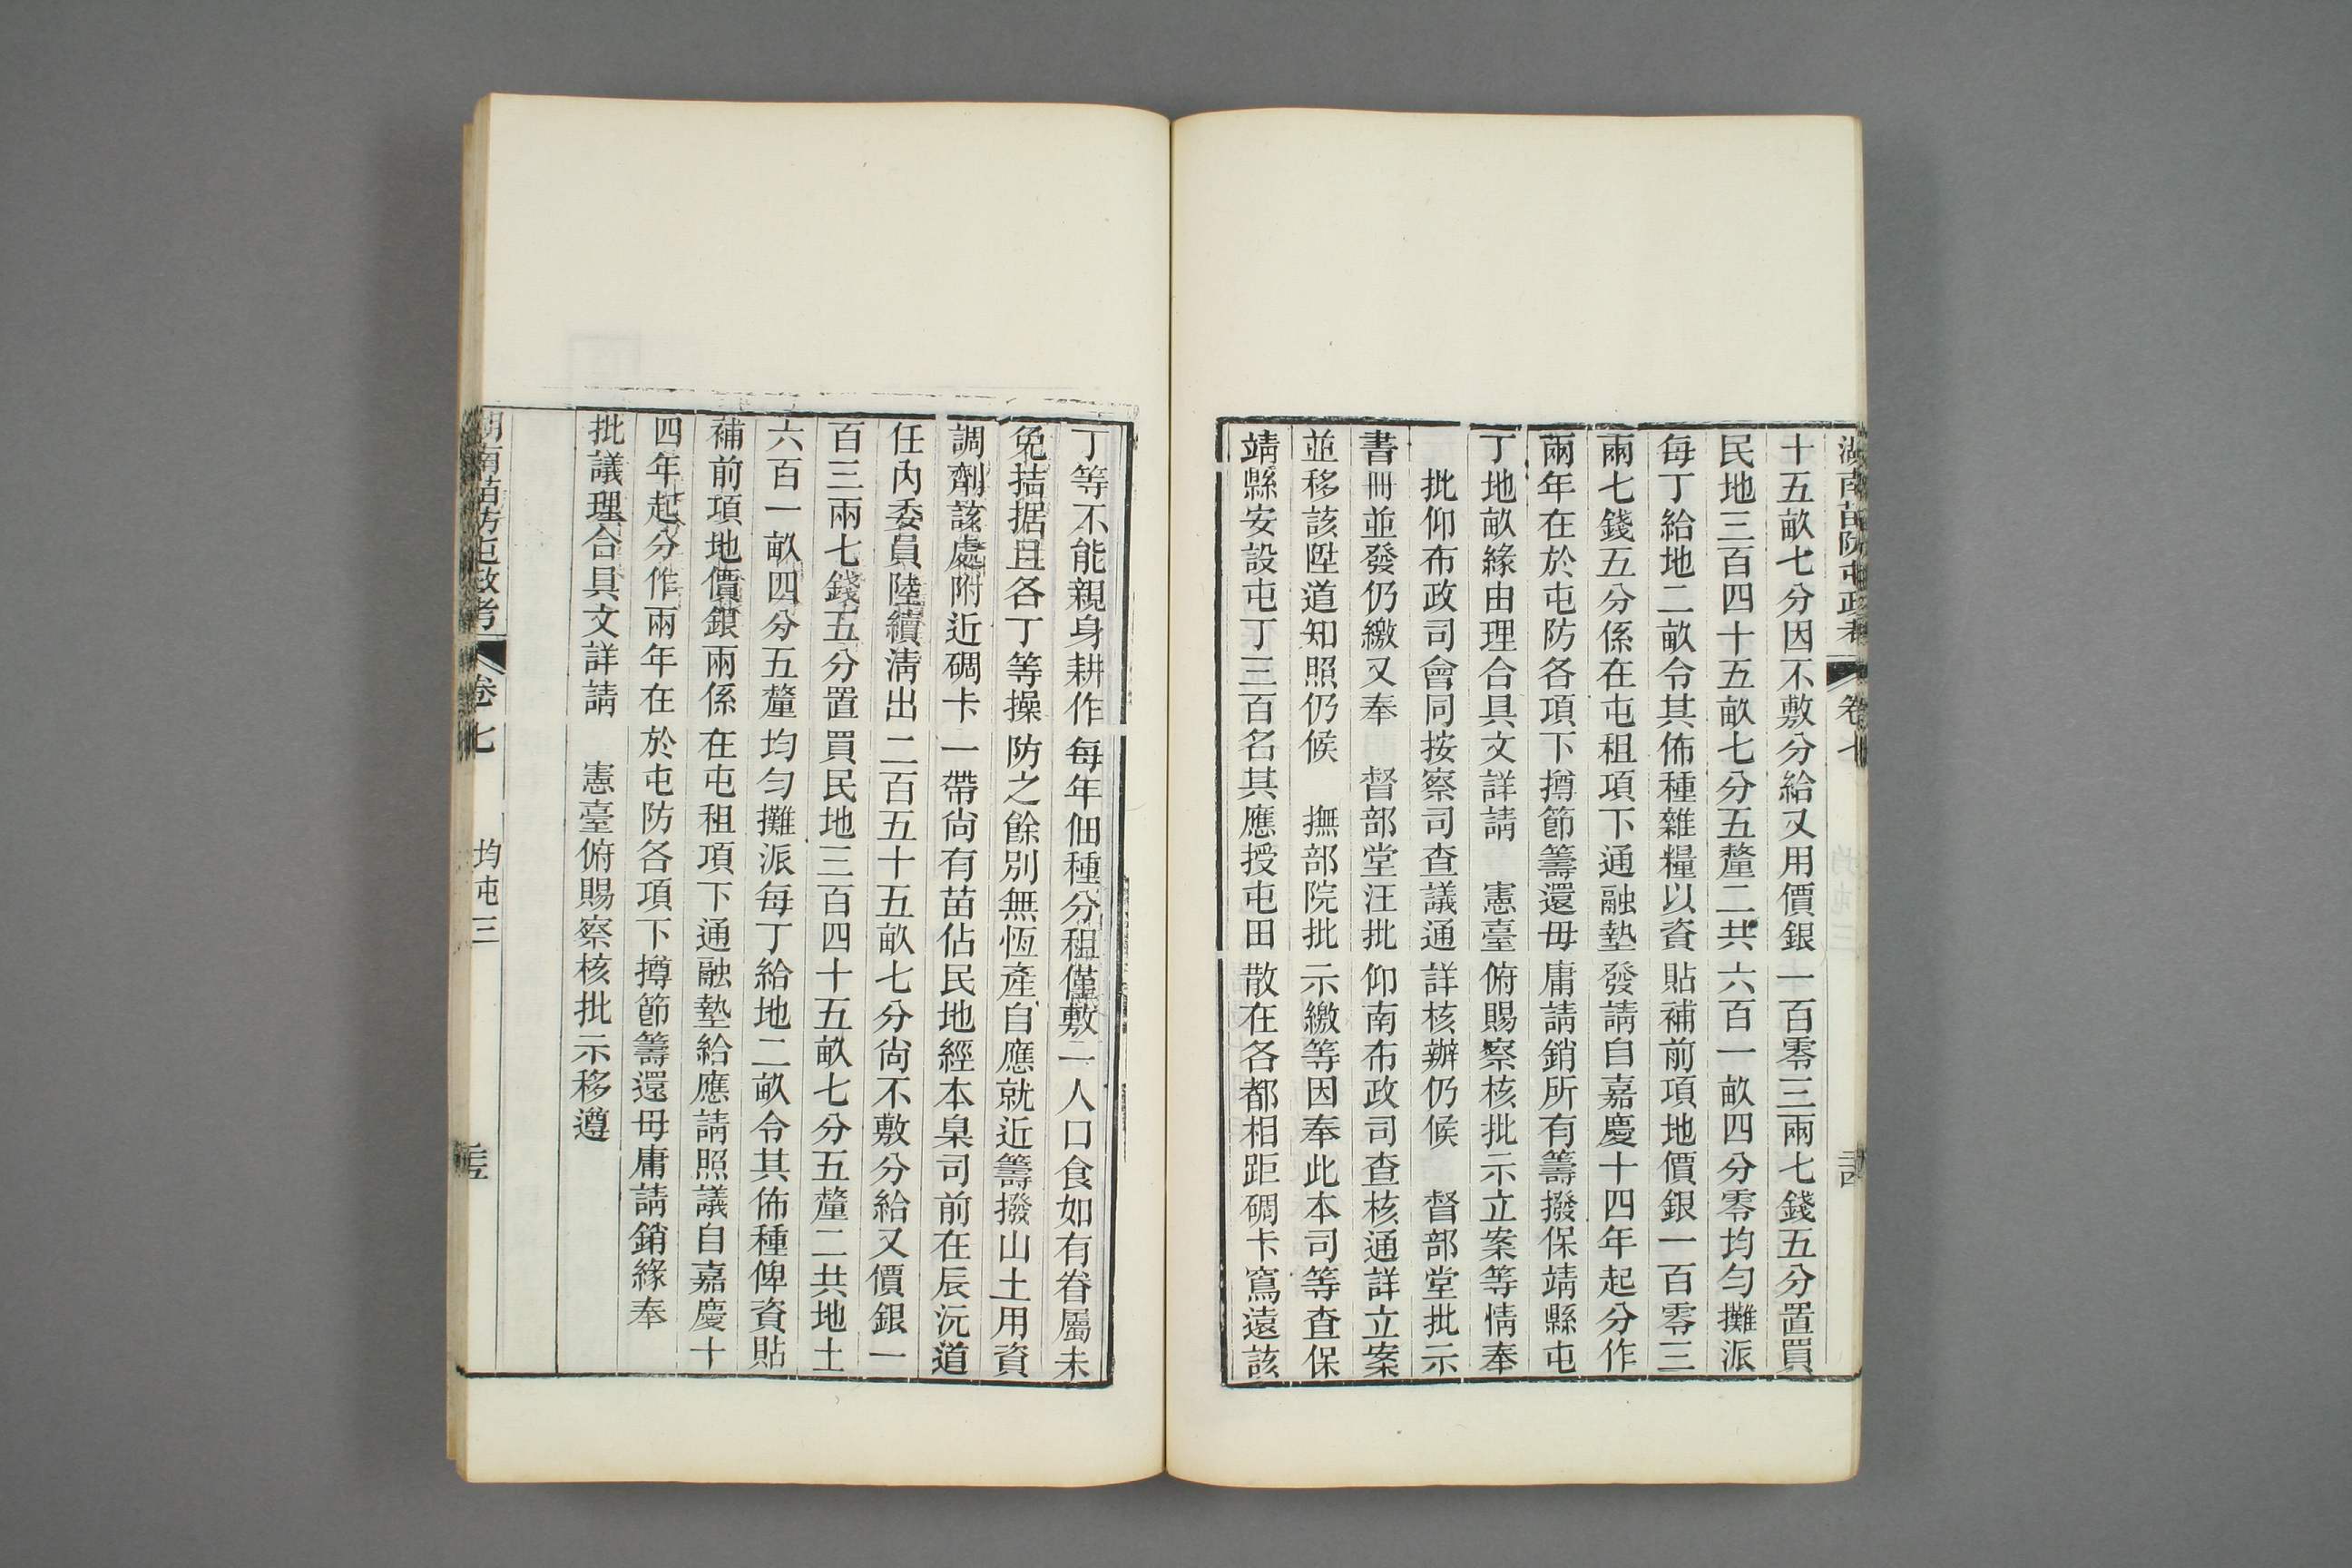 湖南苗防屯政考 卷七
十五畝七分因不敷分給又用價銀一百零三兩七錢五分置買
民地三百四十五畝七分五釐二共六百一畝四分零均勻攤派
每丁給地二畝令其佈種雜糧以資貼補前項地價銀一百零三
兩七錢五分係在屯租項下通融墊發請自嘉慶十四年起分作
兩年在於屯防各項下撙節籌還毋庸請銷所有籌撥保靖縣屯
丁地畝緣由理合具文詳請 憲臺俯賜察核批示立案等情奉
批仰布政司會同按察司查議通詳核辦仍候 督部堂批示
書冊並發仍繳又奉 督部堂汪批仰南布政司查核通詳立案
並移該陞道知照仍候 撫部院批示繳等因奉此本司等查保
靖縣安設屯丁三百名其應授屯田散在各都相距碉卡窵遠該
丁等不能親身耕作每年佃種分租僅敷一人口食如有眷屬未
免拮据且各丁等操防之餘別無恆產自應就近籌撥山土用資
調劑該處附近碉卡一帶尚有苗佔民地經本臬司前在辰沅道
任內委員陸續清出二百五十五畝七分尚不敷分給又價銀一
百三兩七錢五分置買民地三百四十五畝七分五釐二共地土
六百一畝四分五釐均勻攤派每丁給地二畝令其佈種俾資貼
補前項地價銀兩係在屯租項下通融墊給應請照議自嘉慶十
四年起分作兩年在於屯防各項下撙節籌還毋庸請銷緣奉
批議理合具文詳請 憲臺俯賜察核批示移遵
湖南苗防屯政考 卷七 均屯三 三五